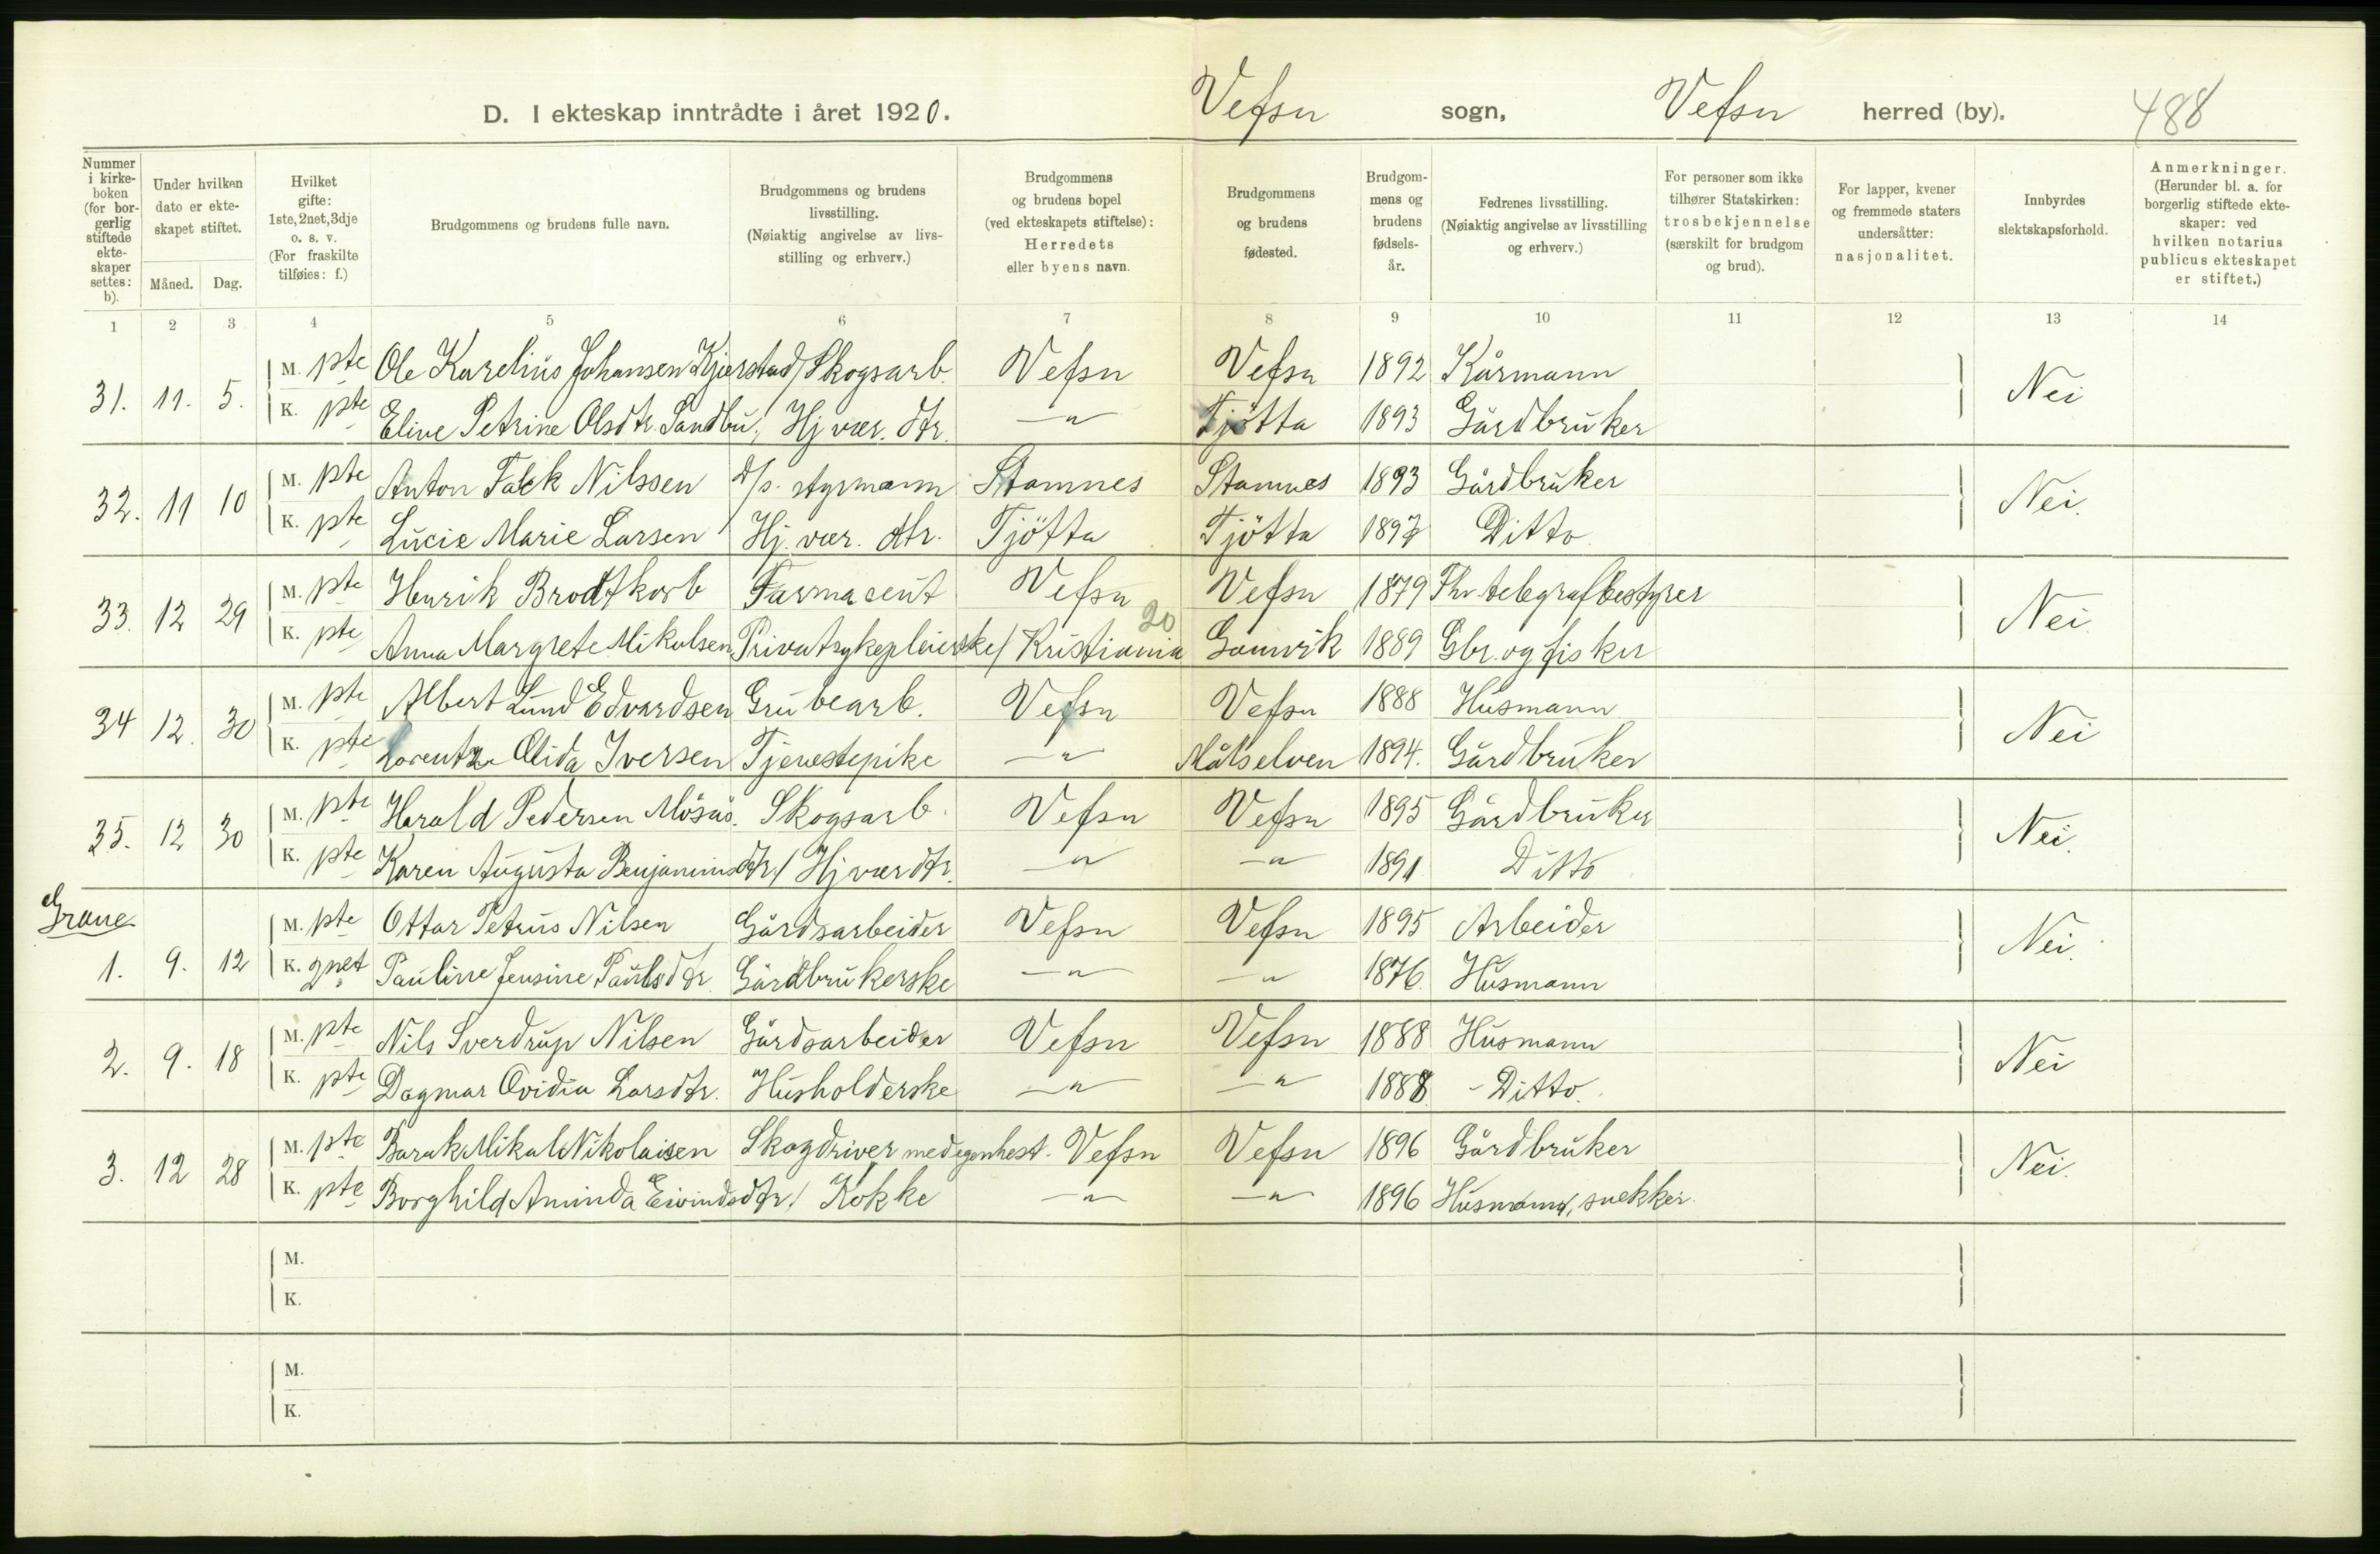 D. I ekteskap inntrådte i året 1920. Vefsn sogn, Vefsn herred (by). 488
Nummer i kirkeboken (for borgerlig stiftede ekteskaper settes: b).
Under hvilken dato er ekteskapet stiftet.
Måned. Dag.
Hvilket gifte: 1ste, 2net, 3dje o. s. v. (For fraskilte tilføies: f.)
Brudgommens og brudens fulle navn.
Brudgommens og brudens livsstilling. (Nøiaktig angivelse av livsstilling og erhverv.)
Brudgommens og brudens bopel (ved ekteskapets stiftelse): Herredets eller byens navn.
Brudgommens og brudens fødested.
Brudgommens og brudens fødselsår.
Fedrenes livsstilling. (Nøiaktig angivelse av livsstilling og erhverv.)
For personer som ikke tilhører Statskirken: trosbekjennelse (særskilt for brudgom og brud).
For lapper, kvener og fremmede staters undersåtter: nasjonalitet.
Innbyrdes slektskapsforhold.
Anmerkninger. (Herunder bl. a. for borgerlig stiftede ekteskaper: ved hvilken notarius publicus ekteskapet er stiftet.)
1 2 3 4 5 6 7 8 9 10 11 12 13 14
31. 11. 5. M. pte Ole Karelius Johansen Kjærstad / Skogsarb. Vefsn Vefsn 1892 Kårmann Nei
K. pte Eline Petrine Olsdtr. Sandbu, Hj. vær. dtr. —"— Tjøtta 1893 Gårdbruker
32. 11 10 M. pte Anton Falck Nilssen d/s. styrmann Stamnes Stamnes 1893 Gårdbruker Nei.
K. pte Lucie Marie Larsen Hj. vær. dtr. Tjötta Tjötta 1897 Ditto
33. 12 29 M. pte Henrik Brodtkorb Farmaceut Vefsn Vefsn 1879 Fhv. telegrafbestyrer Nei.
K. pte Anna Margrete Mikalsen Privatsykepleierske / Kristiania 20 Gamvik 1889 Gbr. og fisker
34 12. 30 M. pte Albert Lund Edvardsen Grubearb. Vefsn Vefsn 1888 Husmann Nei
K. pte Lorentze Olida Iversen Tjenestepike —"— Målselven 1894. Gårdbruker
35. 12 30 M. pte Harald Pedersen Mösås. Skogsarb. Vefsn Vefsn 1895 Gårdbruker Nei.
K. pte Karen Augusta Benjaminsdtr / Hj vær dtr. —"— —"— 1891 Ditto
Grane
1. 9. 12 M. pte Ottar Petrus Nilsen Gårdsarbeider Vefsn Vefsn 1895 Arbeider Nei.
K. 2net Pauline Jensine Paulsdtr. Gårdbrukerske —"— —"— 1876. Husmann
2. 9. 18 M. pte Nils Sverdrup Nilsen Gårdsarbeider Vefsn Vefsn 1888 Husmann Nei
K. pte Dagmar Ovidia Larsdtr. Husholderske —"— —"— 1888. - Ditto.
3. 12 28 M. pte Barak Mikal Nikolaisen Skogdriver med egen hest. Vefsn Vefsn 1896 Gårdbruker Nei.
K. pte Borghild Aminda Eivindsdtr / Kokke —"— —"— 1896 Husmann, snekker.
M.
K.
M.
K.